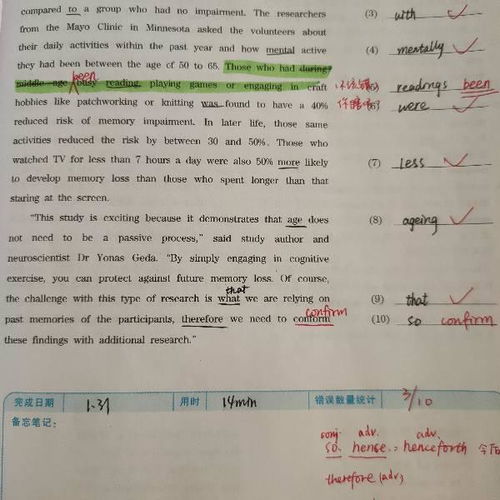 compared to a group who had no impairment. The researchers
(3) with
from the Mayo Clinic in Minnesota asked the volunteers about
their daily activities within the past year and how mental active
(4) mentally
they had been between the age of 50 to 65. Those who had during
been
middle age busy reading, playing games or engaging in craft
readings been
hobbies like patchworking or knitting was found to have a 40%
were
reduced risk of memory impairment. In later life, those same
activities reduced the risk by between 30 and 50%. Those who
watched TV for less than 7 hours a day were also 50% more likely
(7) less
to develop memory loss than those who spent longer than that
staring at the screen.
"This study is exciting because it demonstrates that age does
(8) ageing
not need to be a passive process," said study author and
neuroscientist Dr Yonas Geda. "By simply engaging in cognitive
exercise, you can protect against future memory loss. Of course,
that
the challenge with this type of research is what we are relying on
(9) that
confirm
past memories of the participants, therefore we need to conform
(10) so confirm
these findings with additional research."
完成日期 1.31 用时 14min 错误数量统计 3/10
备忘笔记:
conj. adv. adv.
so. hense., henceforth 今后
therefore (adv)